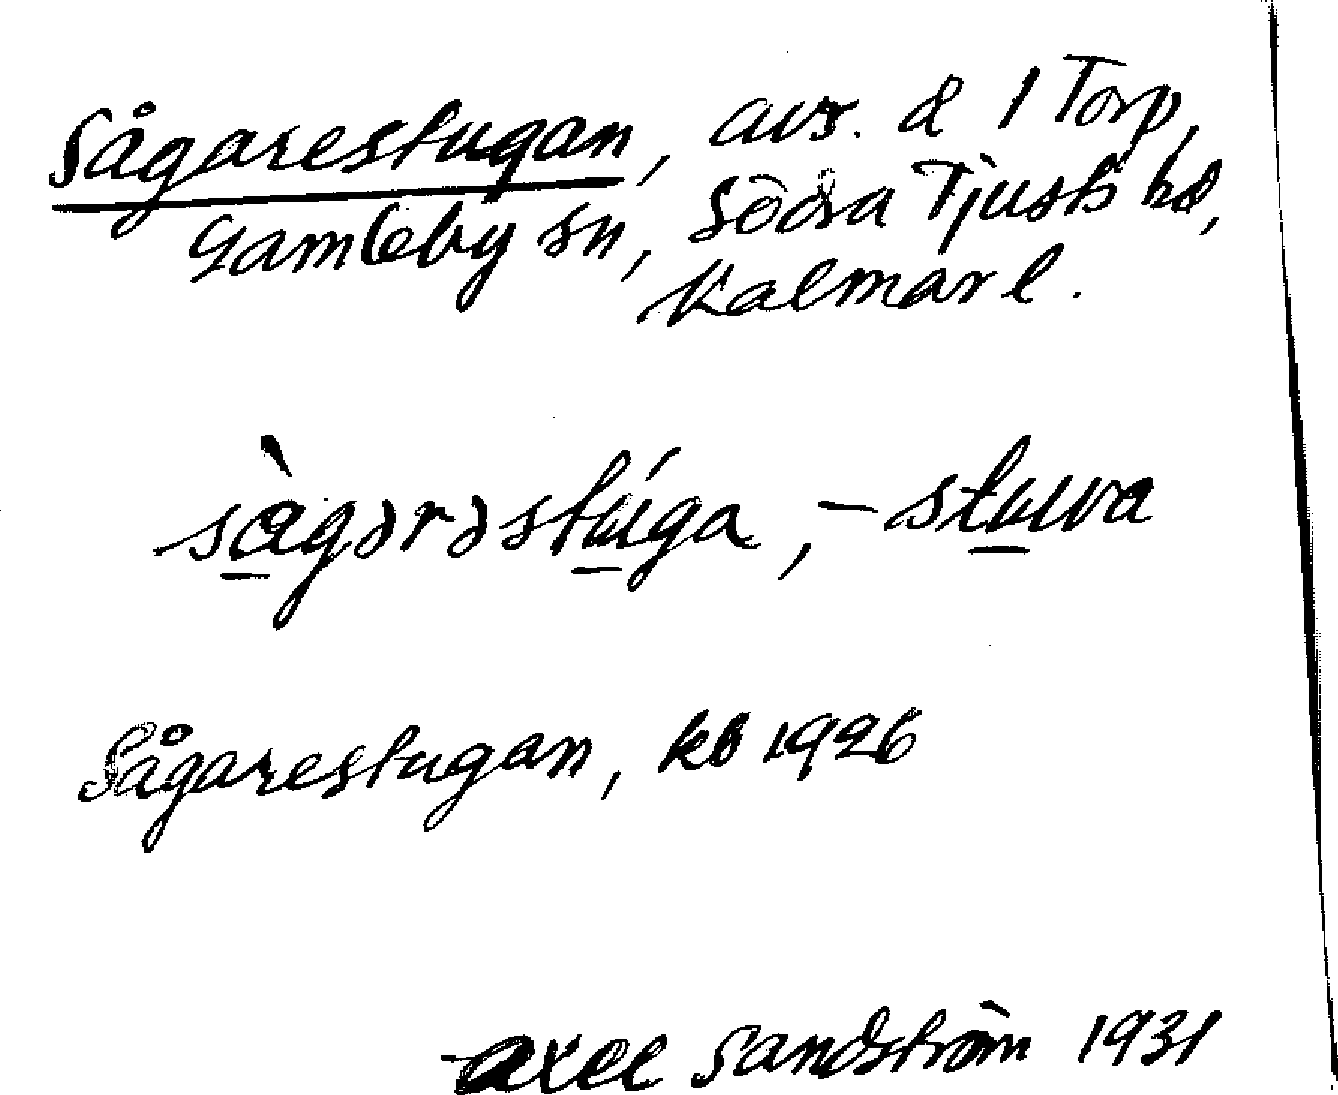 Sågarestugan, avs. å 1 Torp,
Gamleby sn, Södra Tjusts hd,
Kalmar l.
sàgərəstúga, -stuwa
Sågarestugan, kb 1926
Axel Sandström 1931